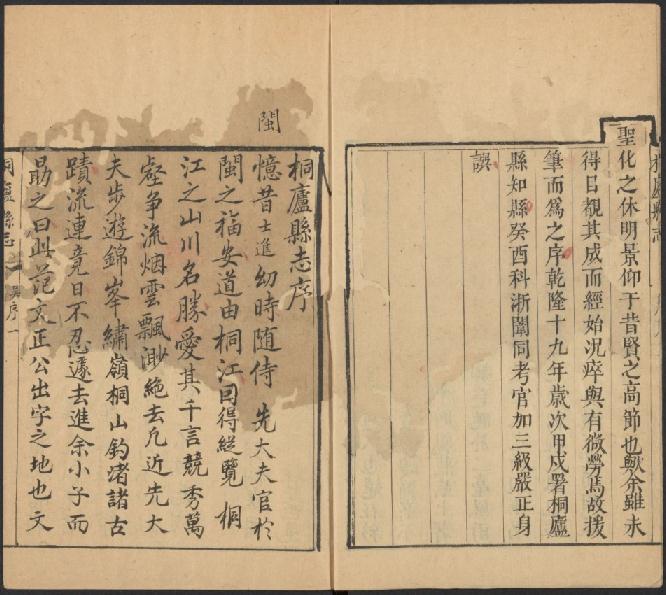 聖化之休明景仰于昔賢之高節也歟余雖未
得目覩其成而經始況瘁與有微勞焉故援
筆而爲之序乾隆十九年歲次甲戌署桐廬
縣知縣癸酉科浙闈同考官加三級嚴正身
譔
閩
桐廬縣志序
憶昔士進幼時随侍 先大夫官於
閩之福安道由桐江因得縱覽 桐
江之山川名勝愛其千言競秀萬
壑爭流烟雲飄渺絶去凡近先大
夫步遊錦峯繡嶺桐山釣渚諸古
蹟流連竟日不忍遽去進余小子而
勗之曰此范文正公出守之地也文
桐廬縣志
序一